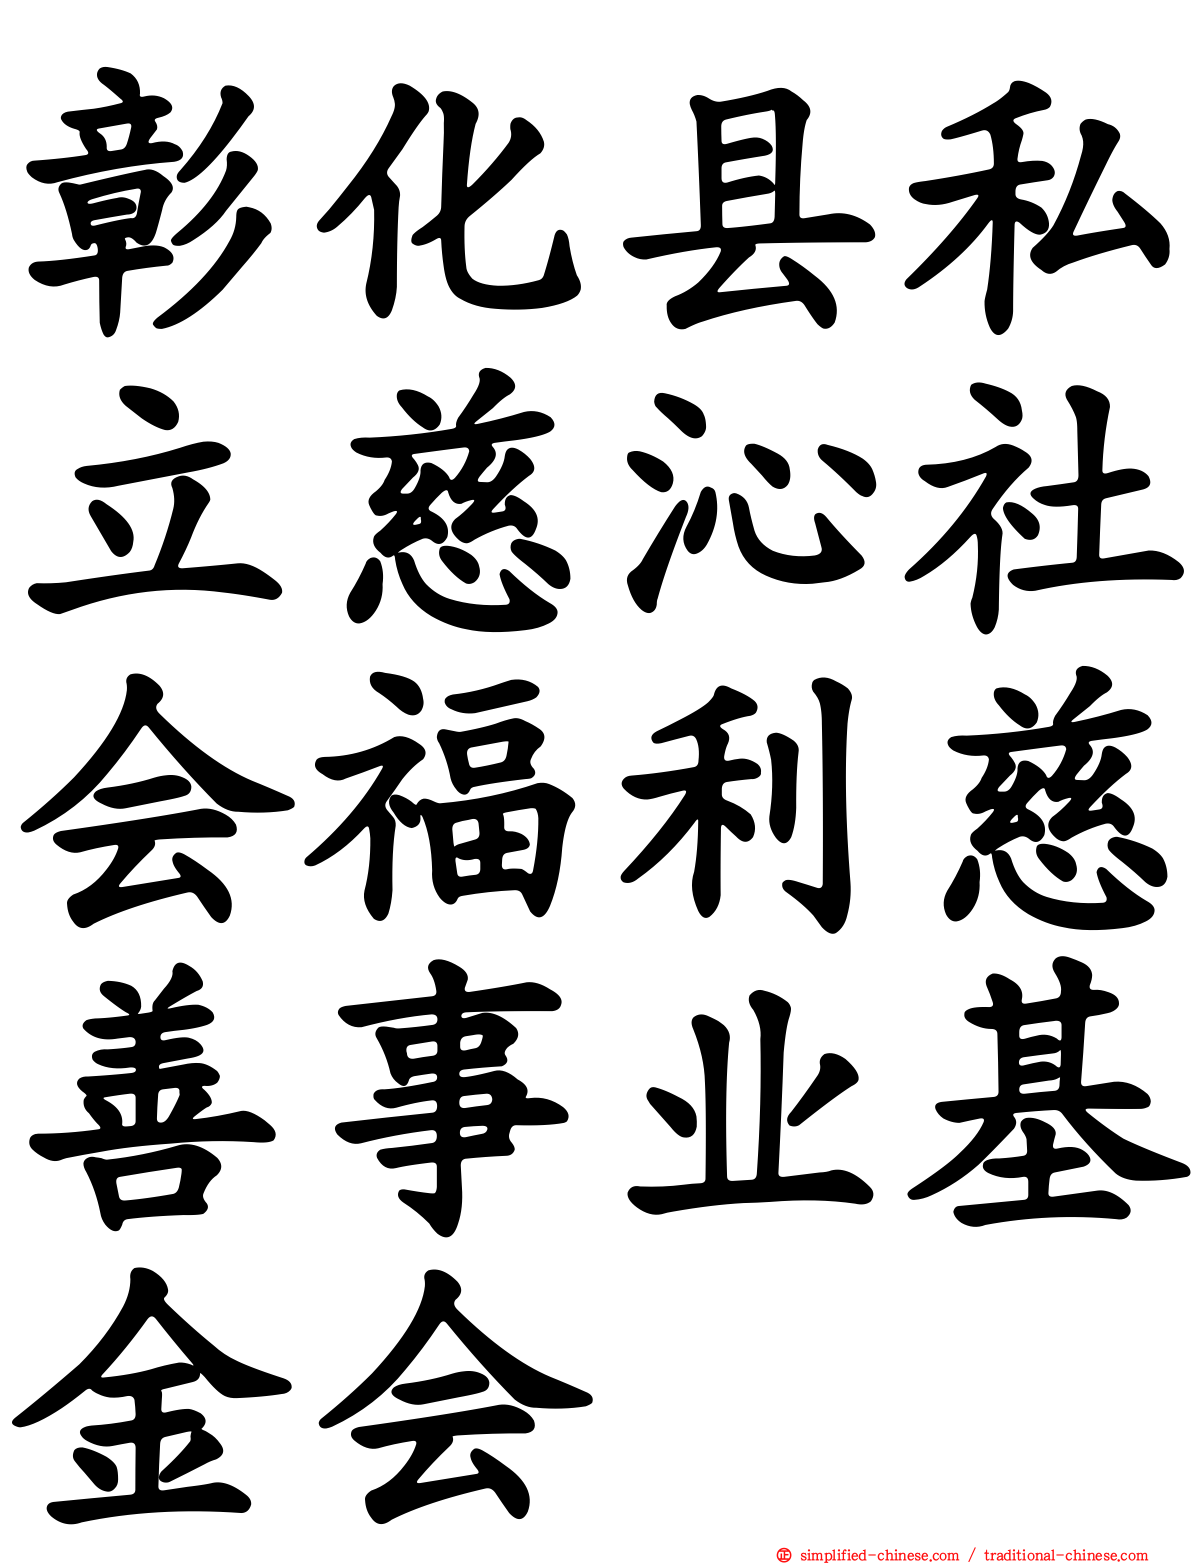 彰化县私
立慈沁社
会福利慈
善事业基
金会
㊣ simplified-chinese.com / traditional-chinese.com